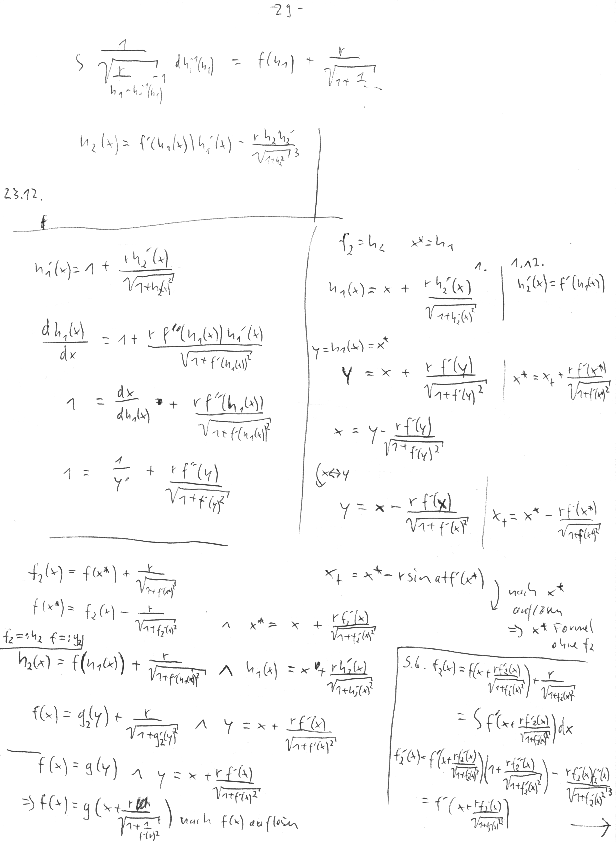 -29-
S 1/√(r/(h₁-h₁⁻¹(h₁))-1) dh₁⁻¹(h₁) = f(h₁) + r/√(1+1/
h₂(x) = f'(h₁(x)) h₁'(x) - r h₂ h₂'/√(1+h₂²)³
23.12.
h₁'(x) = 1 + r h₂''(x)/√(1+h₂'(x)²)
dh₁(x)/dx = 1 + r f''(h₁(x)) h₁'(x)/√(1+f'(h₁(x))²)
1 = dx/dh₁(x) + r f''(h₁(x))/√(1+f'(h₁(x))²)
1 = 1/y' + r f''(y)/√(1+f'(y)²)
f₂ = h₂ x* = h₁
h₁(x) = x + r h₂'(x)/√(1+h₂'(x)²) 1. | 1.∧2. h₂'(x) = f'(h₁(x))
y = h₁(x) = x*
y = x + r f'(y)/√(1+f'(y)²) | x* = x₊ + r f'(x*)/√(1+f'(x*)²)
x = y - r f'(y)/√(1+f'(y)²)
x↔y
y = x - r f'(x)/√(1+f'(x)²) | x₊ = x* - r f'(x*)/√(1+f'(x*)²)
f₂(x) = f(x*) + r/√(1+f'(x*)²)
x₊ = x* - r sin at f'(x*)
nach x*
auflösen
⇒ x* Formel
ohne f₂
f(x*) = f₂(x) - r/√(1+f₂'(x)²) ∧ x* = x + r f₂'(x)/√(1+f₂'(x)²)
f₂=:h₂ f=:g₂
h₂(x) = f(h₁(x)) + r/√(1+f'(h₁(x))²) ∧ h₁(x) = x + r h₂'(x)/√(1+h₂'(x)²)
f(x) = g₂(y) + r/√(1+g₂'(y)²) ∧ y = x + r f'(x)/√(1+f'(x)²)
f(x) = g(y) ∧ y = x + r f'(x)/√(1+f'(x)²)
⇒ f(x) = g(x + r/√(1+1/f'(x)²)) nach f(x) auflösen
S.6. f₂(x) = f(x + r f₂'(x)/√(1+f₂'(x)²)) + r/√(1+f₂'(x)²)
= ∫ f'(x + r f₂'(x)/√(1+f₂'(x)²)) dx
f₂'(x) = f'(x + r f₂'(x)/√(1+f₂'(x)²)) (1 + r f₂''(x)/√(1+f₂'(x)²)) - r f₂'(x) f₂''(x)/√(1+f₂'(x)²)³
= f'(x + r f₂'(x)/√(1+f₂'(x)²))
→